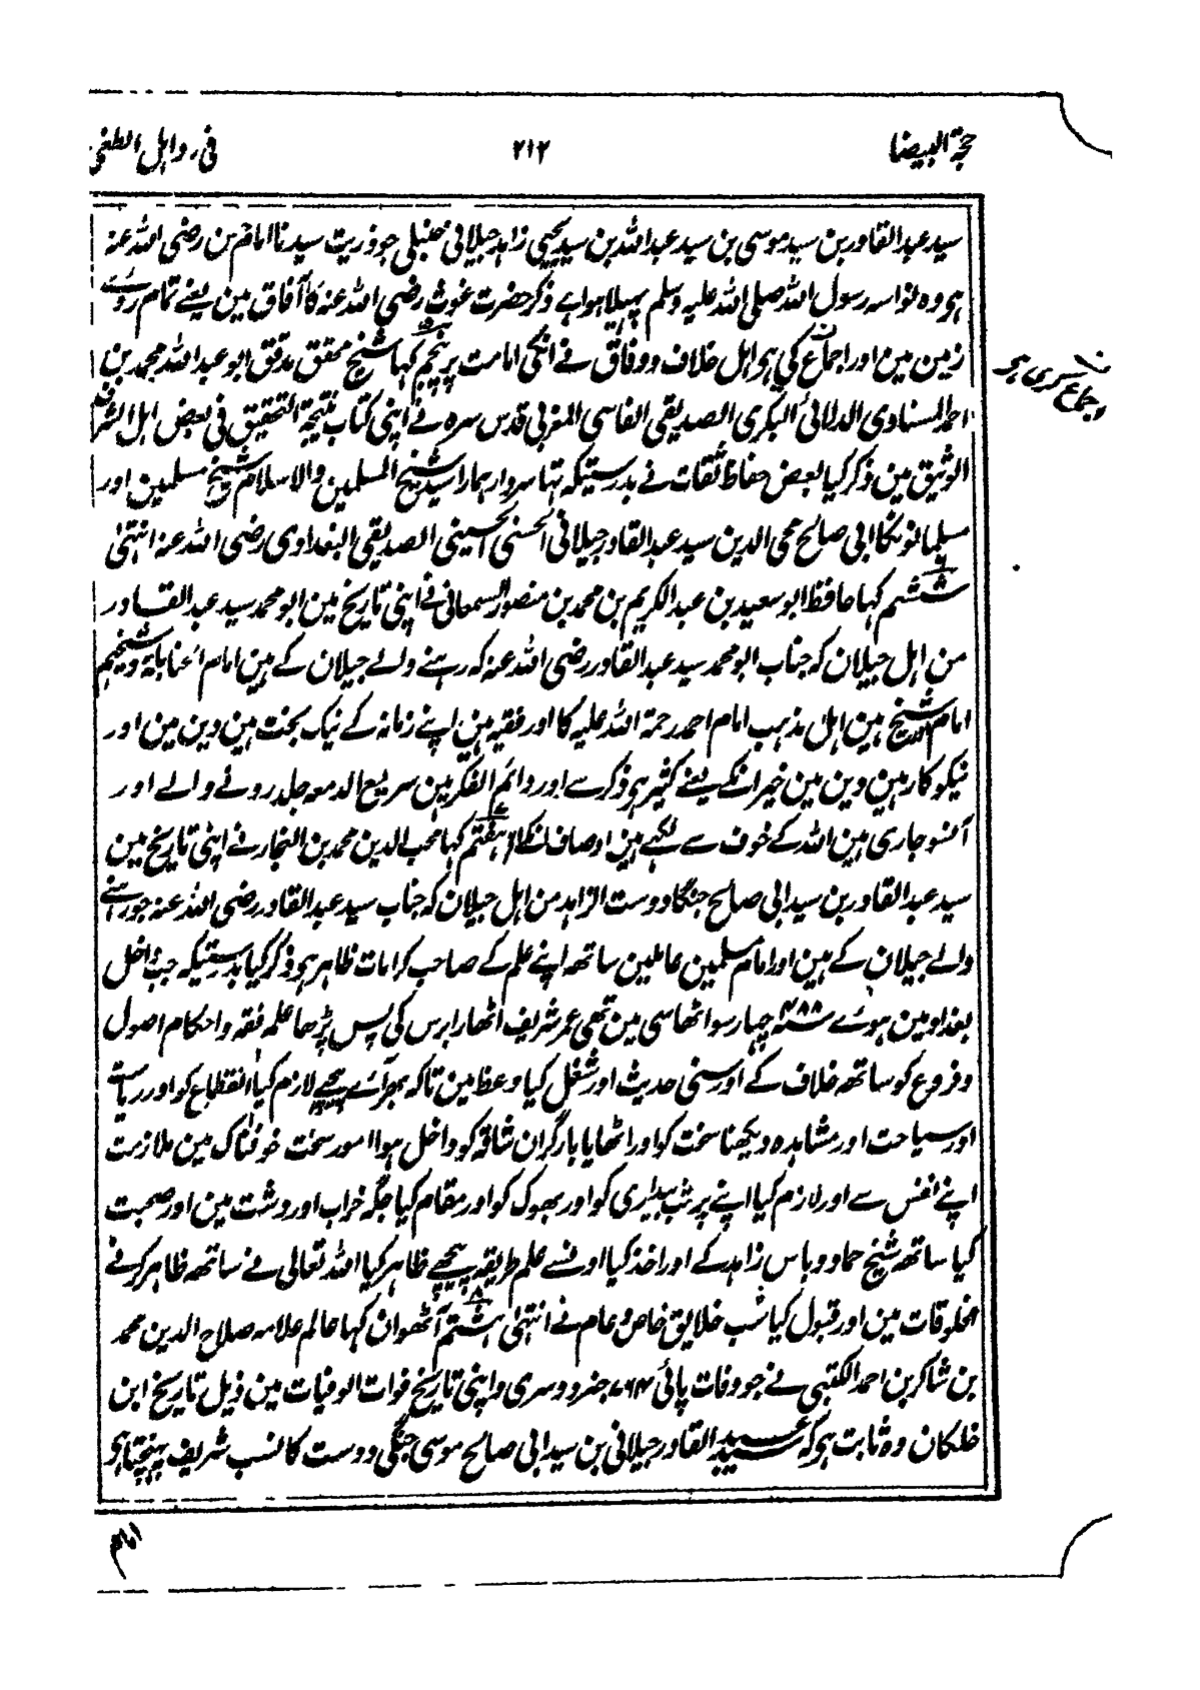 حجۃ البیضا ۲۱۲ فی رد اہل الطغی
سید عبدالقادر بن سید موسی بن سید عبداللہ بن سید یحیی زاہد جیلانی حنبلی جو ذریت سیدنا امام حسن رضی اللہ عنہ
ہو وہ نواسہ رسول اللہ صلی اللہ علیہ وسلم پہیلا ہوا ہے ذکر حضرت غوث رضی اللہ عنہ کا آفاق مین یعنے تمام روئے
زمین مین اور اجماع کی ہو اہل خلاف و وفاق نے انکی امامت پر پنجم ۵ کہا شیخ محقق مدقق ابو عبداللہ محمد بن
اجماع کری ہو
احمد المسناوی الدلائی البکری الصدیقی الفاسی المغربی قدس سرہ نے اپنی کتاب نتیجۃ التحقیق فی بعض اہل الشرف
الوثیق مین ذکر کیا بعض حفاظ ثقات نے بدرستیکہ تہا سردار ہمارا سید شیخ المسلمین والاسلام شیخ مسلمین اور
مسلمانونکا ابی صالح محی الدین سید عبدالقادر جیلانی الحسنی الحسینی الصدیقی البغدادی رضی اللہ عنہ انتہی
ششم ۶ کہا حافظ ابو سعید بن عبدالکریم بن محمد بن منصور السمعانی نے اپنی تاریخ مین ابو محمد سید عبدالقادر
من اہل جیلان کہ جناب ابو محمد سید عبدالقادر رضی اللہ عنہ کہ رہنے والے جیلان کے ہین امام الحنابلۃ وشیخہم
امام الشیخ ہین اہل مذہب امام احمد رحمۃ اللہ علیہ کا اور فقیہ ہین اپنے زمانہ کے نیک بخت ہین دین مین اور
نیکوکار ہین دین مین خیر انکے یعنے کثیر ہو ذکر سے اور دائم الفکر ہین سریع الدمعہ جلد رونے والے اور
آنسو جاری ہین اللہ کے خوف سے لکہے ہین اوصاف انکا ہفتم ۷ کہا محب الدین محمد بن النجار نے اپنی تاریخ مین
سید عبدالقادر بن سید ابی صالح جنگا دوست الزاہد من اہل جیلان کہ جناب سید عبدالقادر رضی اللہ عنہ جو رہنے
والے جیلان کے ہین اور امام مسلمین عاملین ساتھ اپنے علم کے صاحب کرامات ظاہر ہو ذکر کیا بدرستیکہ جب داخل
بغداد مین ہوئے ۴۸۸ سنہ چہار سو اٹھاسی مین تہی عمر شریف اٹھارا برس کی پس پڑھا علم فقہ و احکام اصول
و فروع کو ساتھ خلاف کے اور سنی حدیث اور شغل کیا وعظ مین تاکہ بہر آئے پیچہے لازم کیا انقطاع کو اور ریاست
اور سیاحت اور مشاہدہ دیکھنا سخت کو اور اٹھایا بار گران شاقہ کو داخل ہوا امور سخت خوفناک مین ملازمت
اپنے نفس سے اور لازم کیا اپنے پر شب بیداری کو اور بھوک کو اور مقام کیا جگہ خراب اور دشت مین اور صحبت
کیا ساتھ شیخ حماد دباس زاہد کے اور اخذ کیا اونسے علم طریقہ پیچہے ظاہر کیا اللہ تعالی نے ساتھ ظاہر کرنے
مخلوقات مین اور قبول کیا شب خلایق خاص و عام نے انتہی ہشتم ۸ آٹھوان کہا عالم علامہ صلاح الدین محمد
بن شاکر بن احمد الکتبی نے جو وفات پائی ۷۶۴ جزو دوسری و اپنی تاریخ فوات الوفیات مین ذیل تاریخ ابن
خلکان وہ ثابت ہو کہ سید عبدالقادر جیلانی بن سید ابی صالح موسی جنگی دوست کا نسب شریف پہنچتا ہو
امام